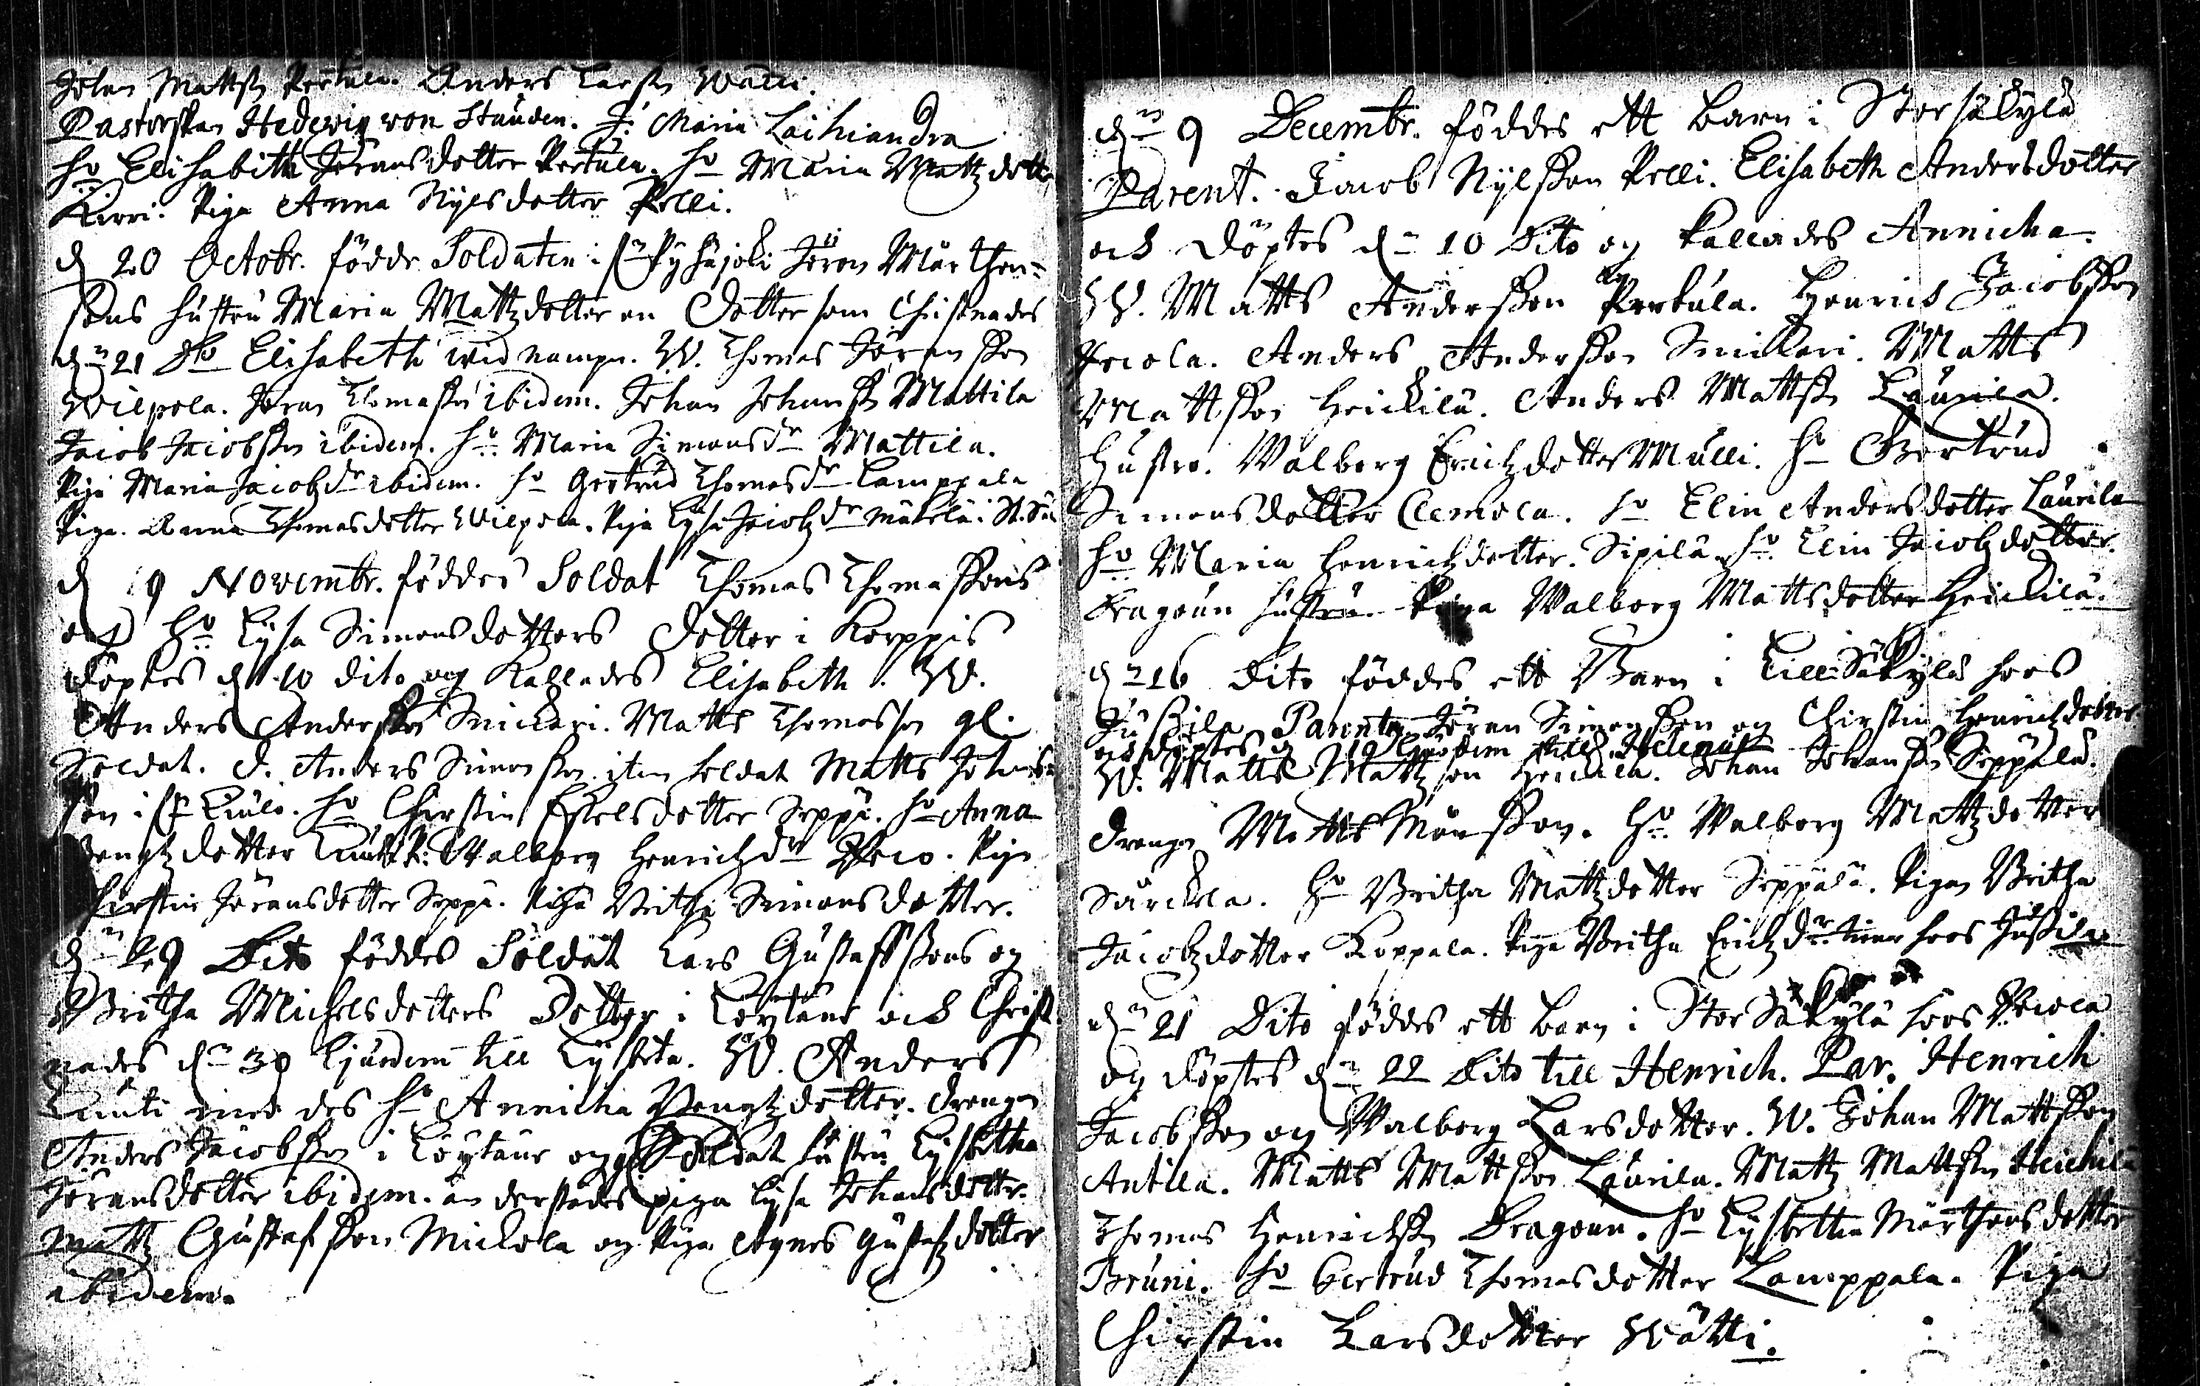 Johan Mattsson Pertula. Anders Larsson Wätti.
Pastorskan Hedewig von Stauden. J: Maria Laihiandra
ho Elisabith Jöransdotter Pertula. ho Maria Mattzdotter
Kirri. Piga Anna Nylsdotter Pelli.
d 20 Octobr. födde Soldaten i Pyhäjoki Jöran Mårthen=
sons hustru Maria Mattzdotter en Dotter som Christnades
dn 21 dto Elisabeth wid nampn. W. Thomas Jöransson
Wilpola. Jöran Thomasson ibidem. Johan Johansson Mattila
Jacob Jacobsson ibidem. ho Maria Simonsdr Mattila.
Piga Maria Jacobzdr ibidem. ho Gertrud Thomasdr Lamppala
Piga Anna Thomasdotter Wilpola. Piga Lysa Jacobzdr Mäkelä i St. Sä
d 9 Novembr. föddes Soldat Thomas Thomassons
och ho Lysa Simonsdotters dotter i Korppis
döptes d 10 dito og Kallades Elisabeth. W.
Anders Andersson Snickari. Matts Thomasson gl.
Soldat. d. Anders Simonsson item soldat Matts Johans
son i Kiulo. ho Chirstin Eskelsdotter Seppä. ho Anna
Bengtzdotter Kiutti. Walborg Henrichzdr Prio. Piga
Chirstin Jöransdotter Seppä. Piga Britha Simonsdotter.
dn 29 Dito föddes Soldat Lars Gustaffssons og
Britha Michelsdotters Dotter i Löytäne och Christ
nades dn 30 Ejusdem till Lysbeta. W. Anders
Kiuti med des ho Annicha Bengtzdotter. drengen
Anders Jacobsson i Löytäne og Soldat hustru Lysbetha
Jöransdotter ibidem. än derstädes piga Lysa Johansdotter.
Mattz Gustafsson Mickola og Piga Agnes Gustafzdotter
ibidem.
dn 9 Decembr. föddes ett Barn i Storsäkylä
Parent. Jacob Nylsson Pelli. Elisabeth Andersdotter
och döptes dn 10 Dito og kallades Annicha.
W. Matts Andersson Pertula. Henrich Jacobsson
Priola. Anders Andersson Snickari. Matts
Mattsson Heickilä. Anders Mattsson Laurila.
Hustro. Walborg Erichzdotter Mulli. ho Gertrud
Simonsdotter Clemola. ho Elin Andersdotter Laurila
ho Maria Henrichzdotter Sipilä. ho Elin Jacobzdotter.
Dragoun hustru. Piga Walborg Mattsdotter Heickilä.
dn 16 Dito föddes ett Barn i Lill Säkylä hoos
Jussila Parentes Jöran Simonsson og Chirstin Henrichzdotter
och döptes d 19 Ejusdem till Helena
W. Matts Mattzson Heickilä. Johan Johansson Seppälä.
drengen Matts Månsson. ho Walborg Mattzdotter
Särckilä. ho Britha Mattzdotter Seppälä. Pigan Britha
Jacobzdotter Koppala. Piga Britha Erichzdr tienar hoos Jussila
dn 21 Dito föddes ett barn i Stor Säkylä hoos Priola
og döptes dn 22 Dito till Henrich. Par. Henrich
Jacobsson og Walborg Larsdotter. W. Johan Mattsson
Antila. Matts Mattsson Laurila. Mattz Mattsson Heickilä
Thomas Henrichsson Dragoun. ho Lysbetta Mårthensdotter
Bruni. ho Gertrud Thomasdotter Lamppala. Piga
Chirstin Larsdotter Wätti.